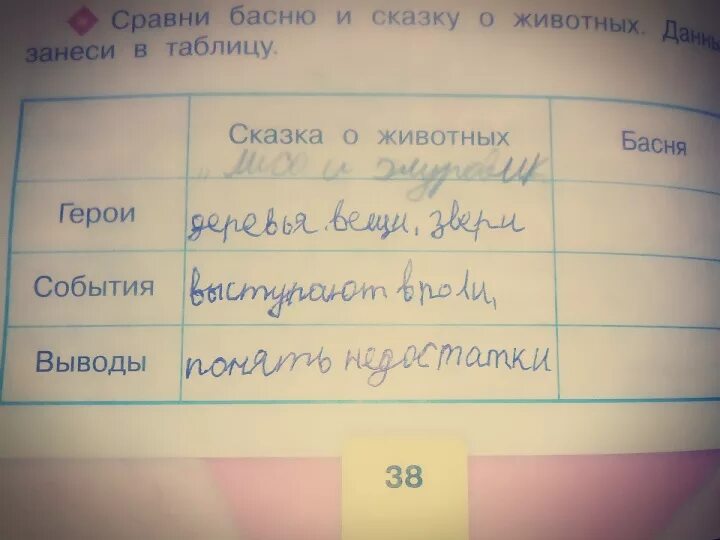 Сравни басню и сказку о животных. Данны
занеси в таблицу.
Сказка о животных
Басня
„ Лиса и журавлик
Герои
деревья. вещи, звери
События
выступают в роли,
Выводы
понять недостатки
38